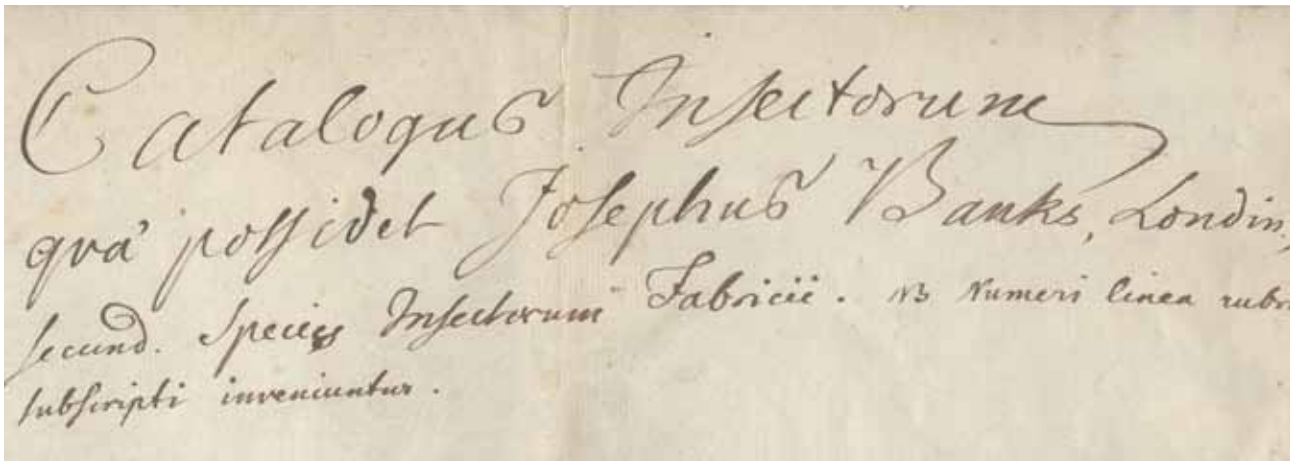 Catalogus Insectorum
qvá possidet Josephus Banks, Londin.,
secund. Species Insectorum Fabricii. NB Numeri linea rubr
subscripti inveniuntur.